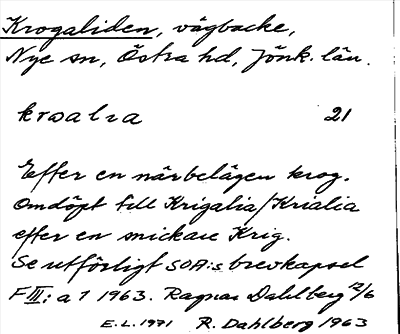 Krogaliden, vägbacke,
Nye sn, Östra hd, Jönk. län.
21
Efter en närbelägen krog.
Omdöpt till Krigalia/Krialia
efter en snickare Krig.
Se utförligt SOA:s brevkapsel
F III: a 7 1963. Ragnar Dahlberg 12/6
E.L. 1971 R. Dahlberg 1963